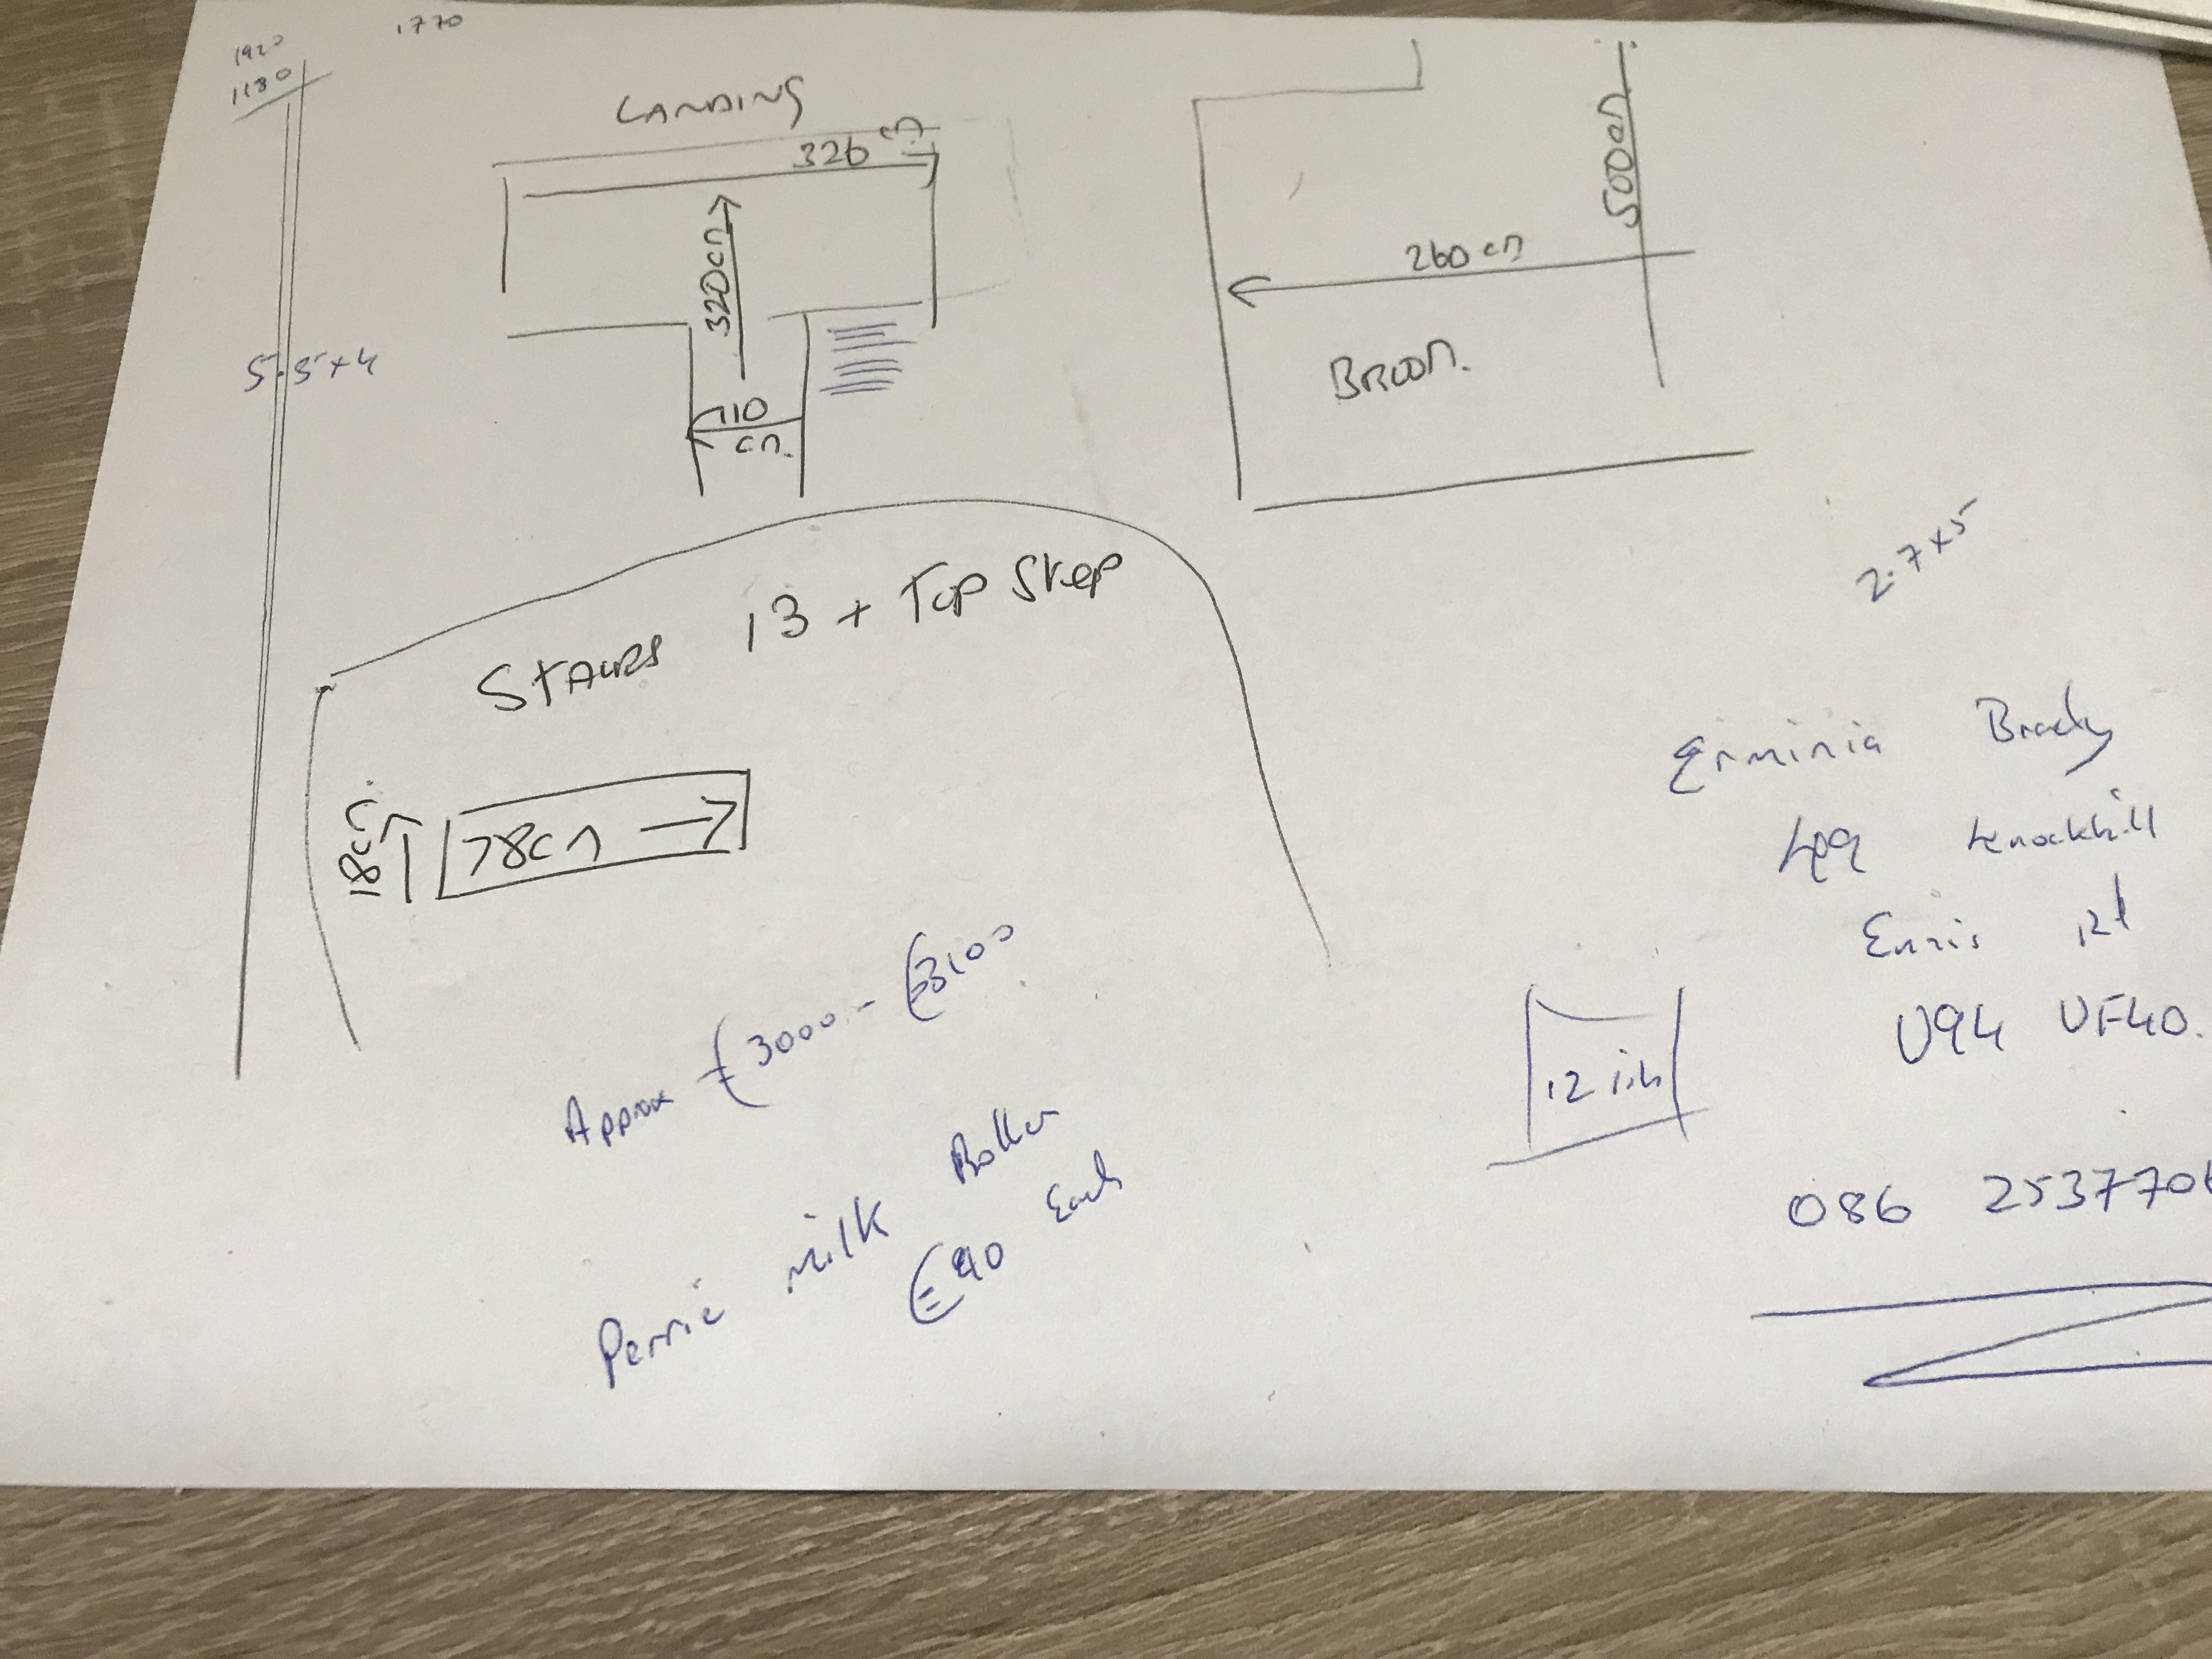 1920
1180
1770
LANDING
326 cm
320cm
110
cm.
5.5x4
500cm
260 cm
BROOM.
2.7x5
STAIRS 13 + Top Step
18cm
78cm
Approx €3000 - €3100
milk
€90 Each
Erminia Brady
49 Knockhill
Ennis rd
V94 VF40.
12 in
086 253770